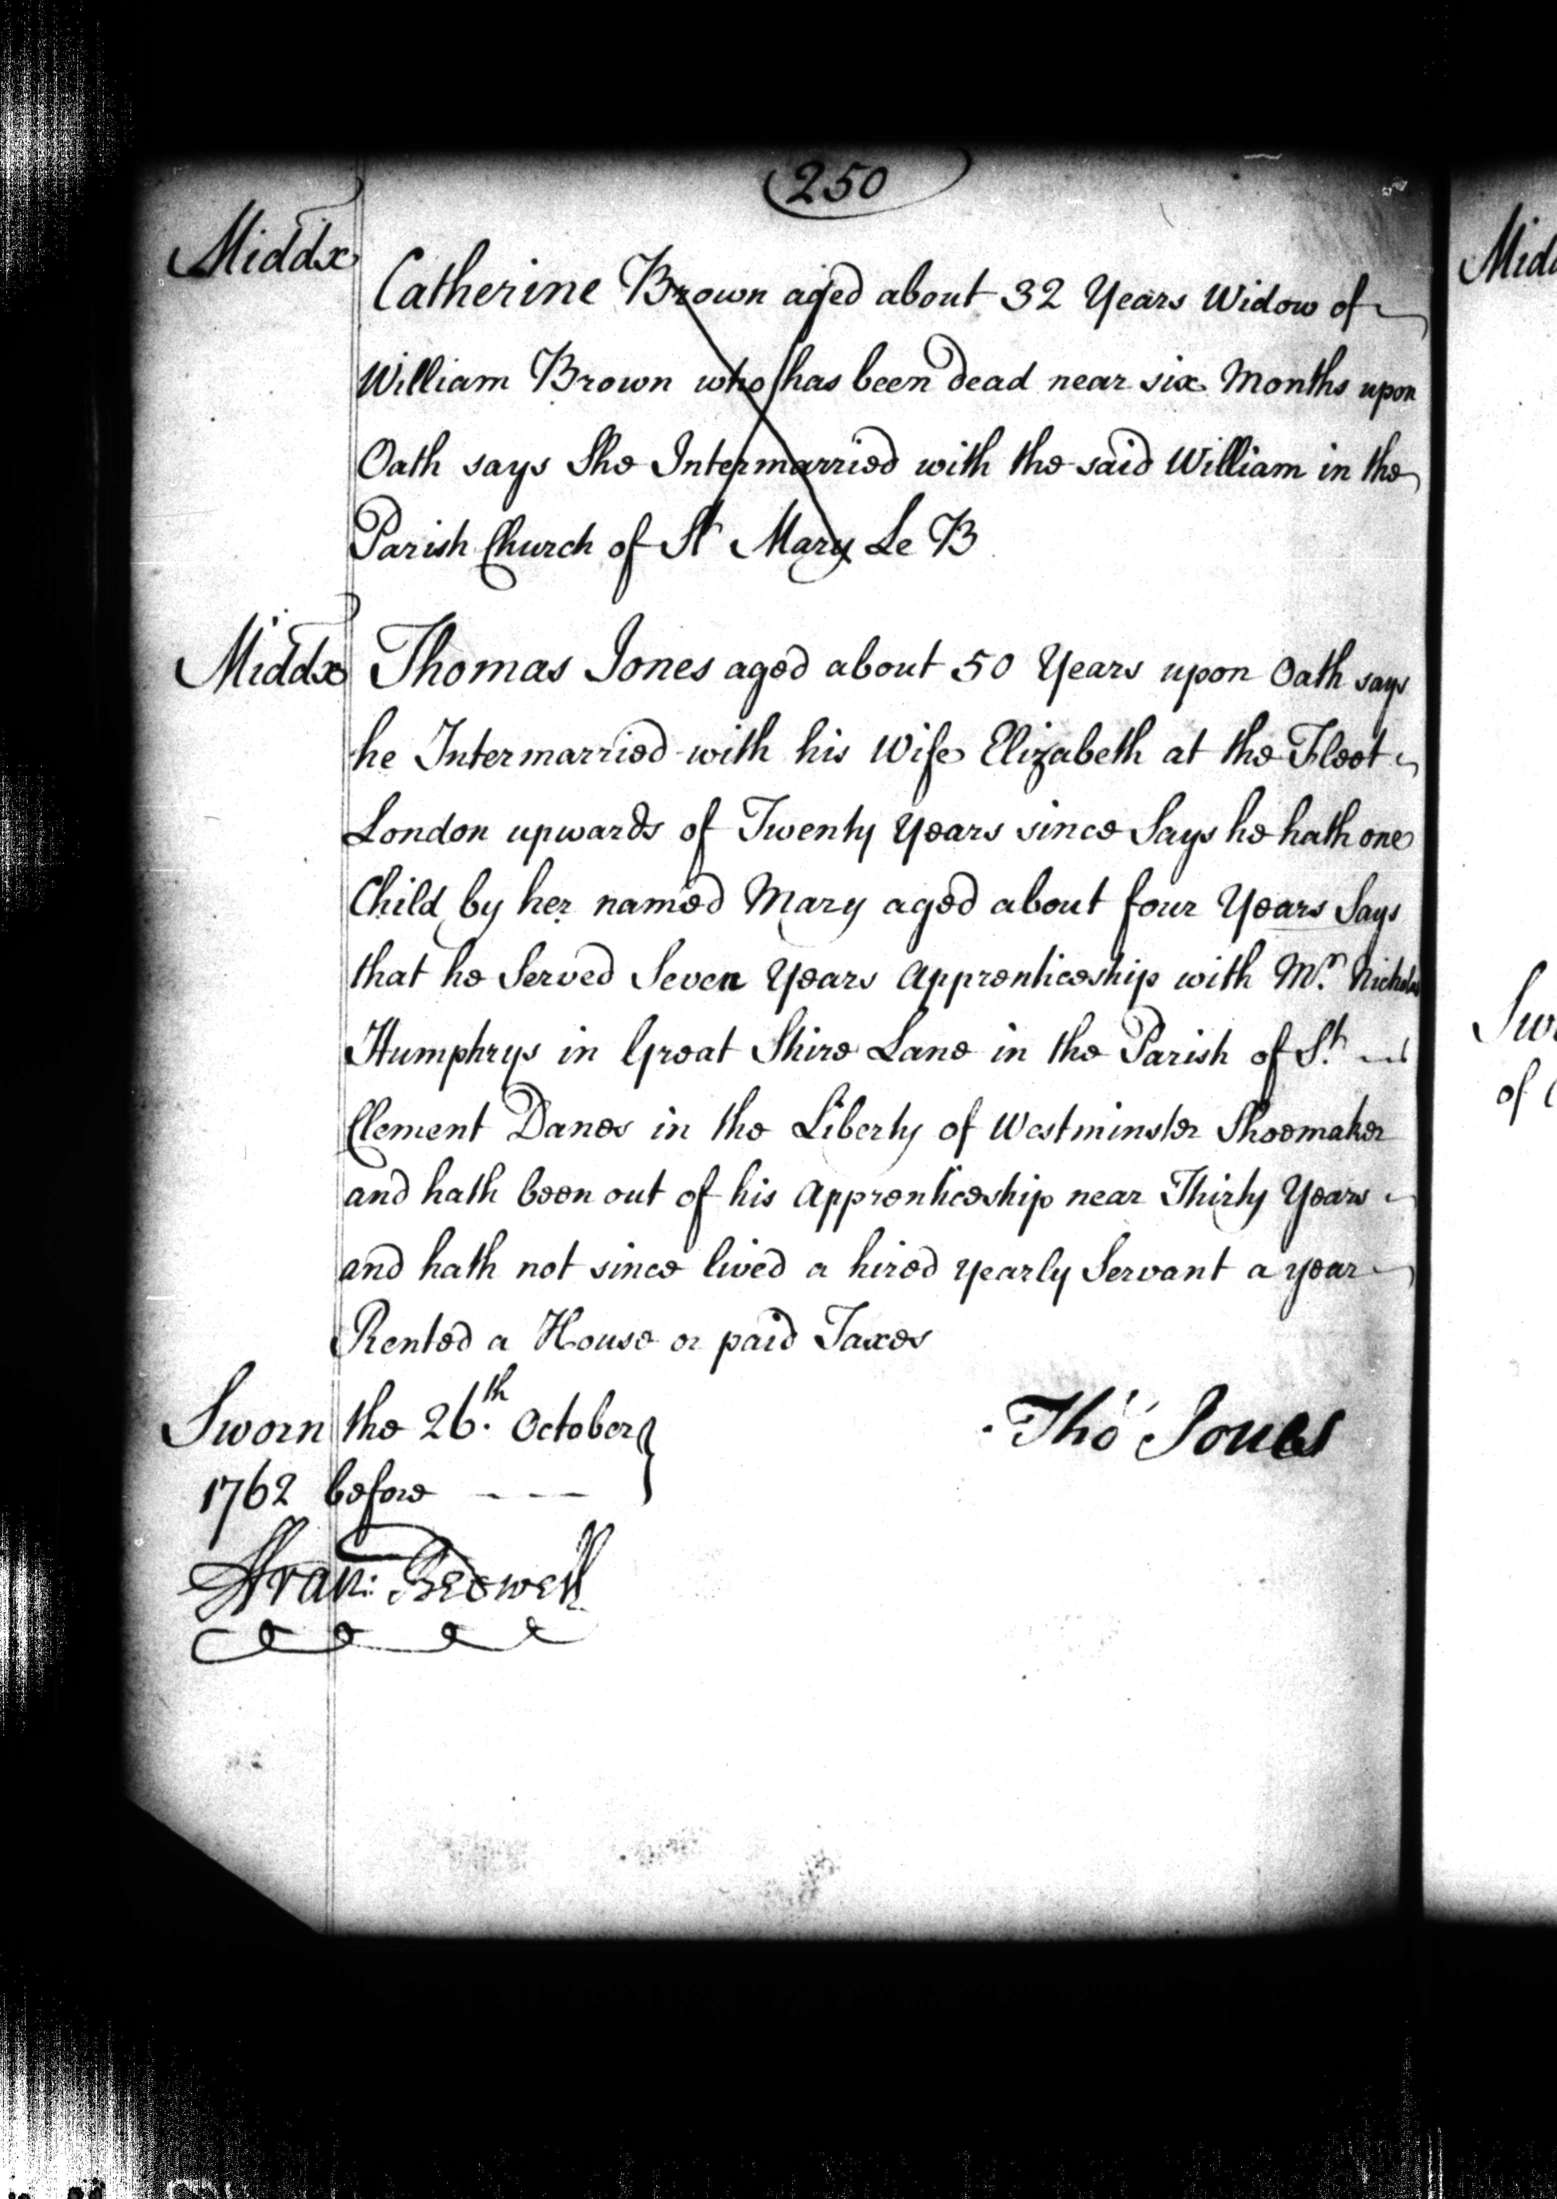 250
Middx
Catherine Brown aged about 32 Years Widow of
William Brown who has been dead near six Months upon
Oath says She Intermarried with the said William in the
Parish Church of St Mary Le B
Middx Thomas Jones aged about 50 Years upon Oath says
he Intermarried with his Wife Elizabeth at the Fleet
London upwards of Twenty Years since Says he hath one
Child by her named Mary aged about four Years Says
that he Served Seven Years Apprenticeship with Mr. Nicholas
Humphrys in Great Shire Lane in the Parish of St.
Clement Danes in the Liberty of Westminster Shoemaker
and hath been out of his Apprenticeship near Thirty Years
and hath not since lived a hired yearly Servant a year
Rented a House or paid Taxes
Sworn the 26.th October
1762 before - - -
Tho Jones
Fran: Bedwell
Midd
Sw
of